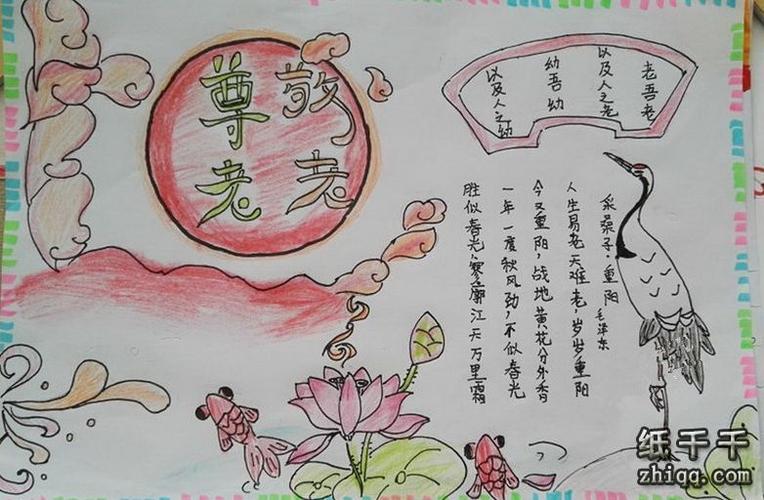 敬老
尊老
老吾老
以及人之老
幼吾幼
以及人之幼
采桑子·重阳
毛泽东
人生易老天难老,岁岁重阳
今又重阳,战地黄花分外香
一年一度秋风劲,不似春光
胜似春光、寥廓江天万里霜
纸千千
zhiqq.com